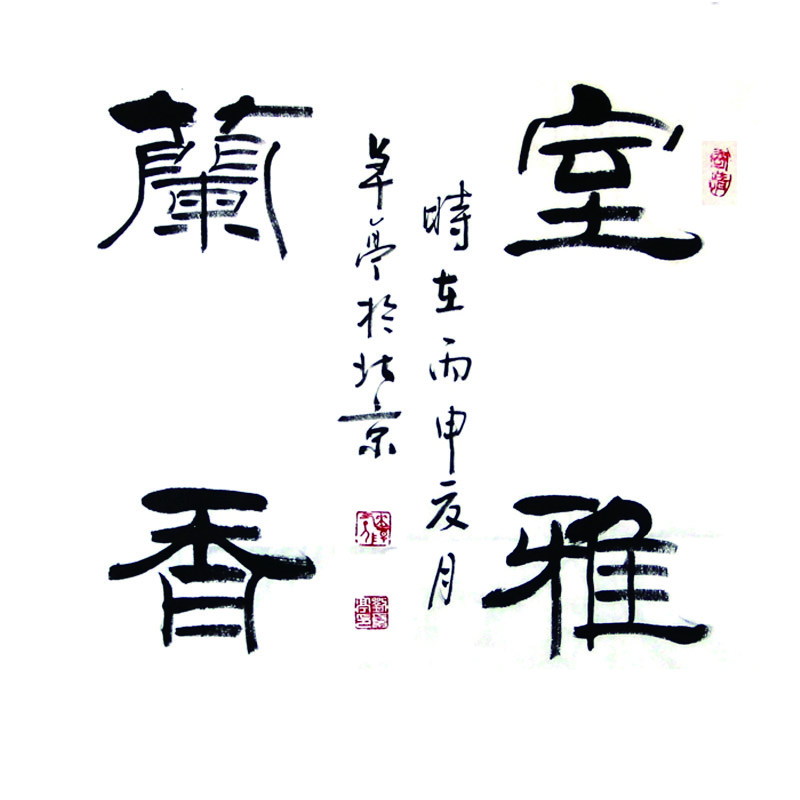 室雅
蘭香
時在丙申夏月
草亭於北京